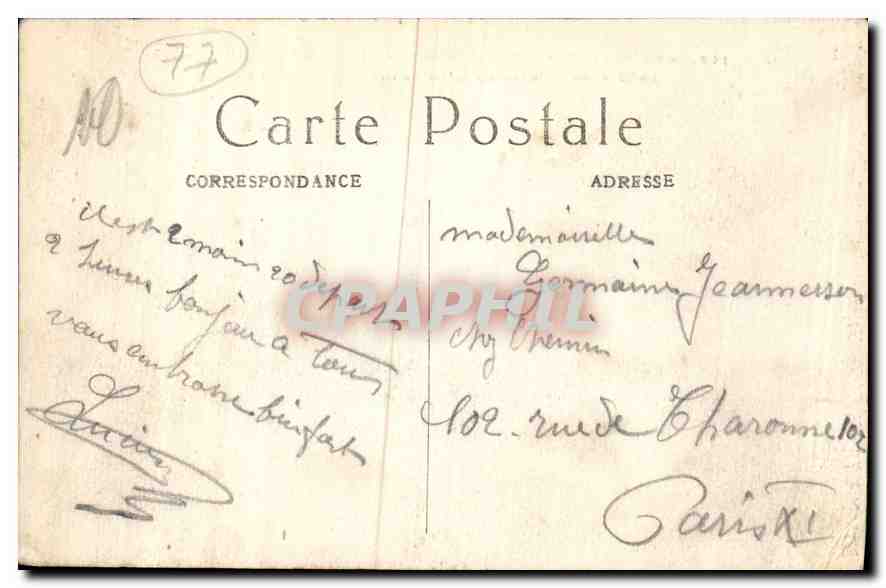 77
Carte Postale
CORRESPONDANCE
ADRESSE
il est 2 moin 20 depart
2 heures bonjour a tous
vous embrasse bien fort
Lucien
mademoiselle
Germaine Jeanmesson
chez Themin
102. rue de Charonne 102
Paris XI
CPAPHIL